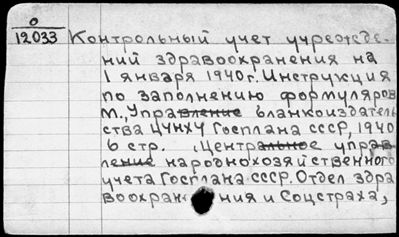 0
12033 Контрольный учет учрежде-
ний здравоохранения на
1 января 1940г. Инструкция
по заполнению формуляров
М., Управление бланкоиздатель
ства ЦУНХУ Госплана СССР, 1940
6 стр. (Центральное управ
ление народнохозяйственного
учета Госплана СССР. Отдел здра
воохранения и Соцстраха,